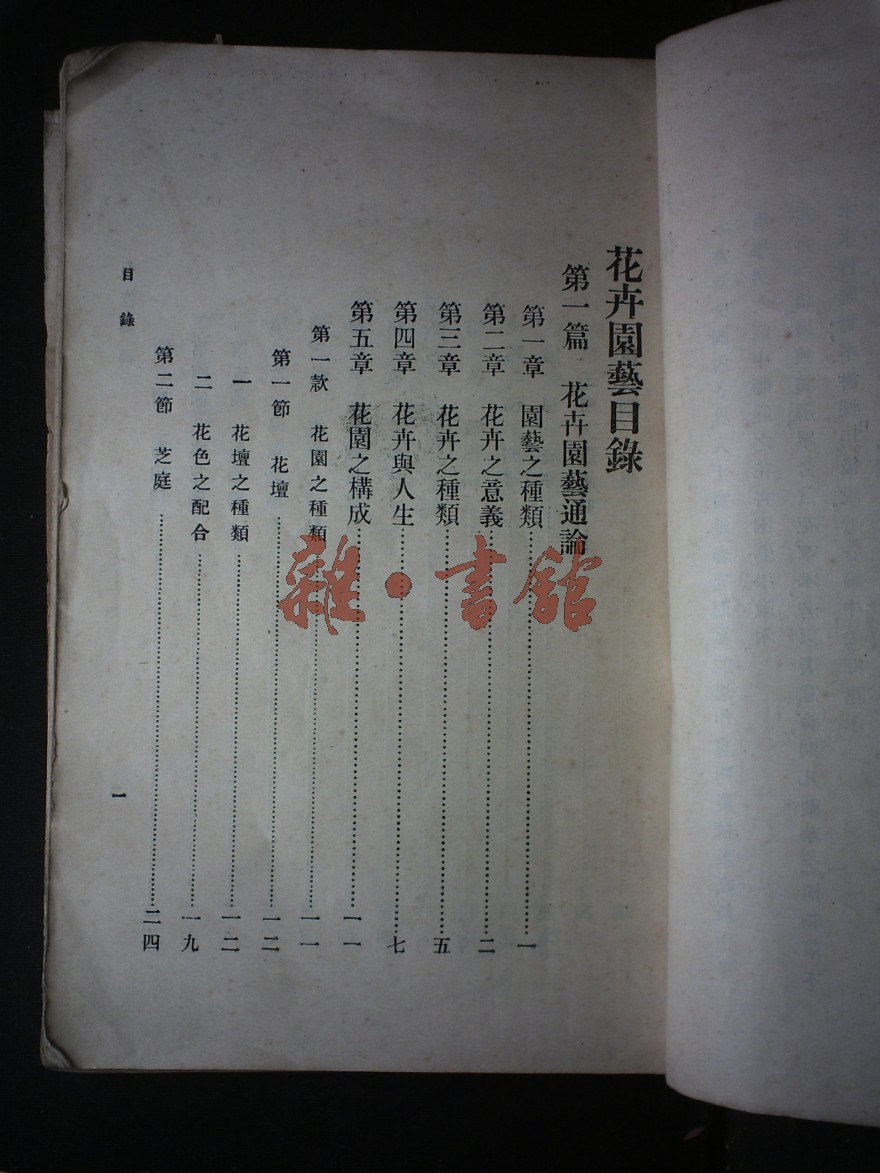 花卉園藝目錄
第一篇 花卉園藝通論
第一章 園藝之種類……一
第二章 花卉之意義……二
第三章 花卉之種類……五
第四章 花卉與人生……七
第五章 花園之構成……一一
第一款 花園之種類……一一
第一節 花壇……一二
一 花壇之種類……一二
二 花色之配合……一九
第二節 芝庭……二四
目錄
一
雜·書館